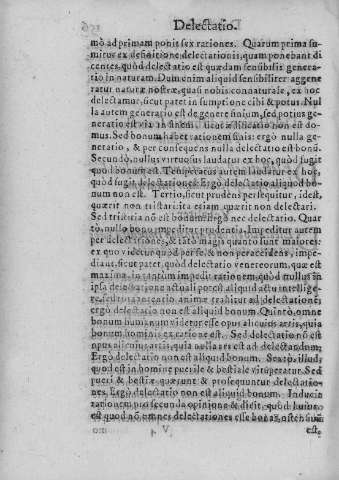 Delectatio.
mō ad primam ponit sex rationes. Quarum prima su-
mitur ex definitione delectationis, quam ponebant di
centes, quòd delectatio est quædam sensibilis genera
tio in naturam. Dum enim aliquid sensibiliter aggene
ratur naturæ nostræ, quasi nobis connaturale, ex hoc
delectamur, sicut patet in sumptione cibi & potus. Nul
la autem generatio est de genere finium, sed potius ge-
neratio est via in finem, sicut ædificatio non est do-
mus. Sed bonum habet rationem finis: ergò nulla ge-
neratio, & per consequens nulla delectatio est bonū.
Secundò, nullus virtuosus laudatur ex hoc, quòd fugit
quod bonum est. Temperatus autem laudatur ex hoc,
quòd fugit delectationes: Ergò delectatio aliquod bo-
num non est. Tertio, sicut prudens persequitur, idest,
quærit non tristari: ita etiam quærit non delectari.
Sed tristitia nō est bonum: Ergo nec delectatio. Quar
tò, nullo bono impeditur prudentia. Impeditur autem
per delectationes, & tātò magis quanto sunt maiores:
ex quo videtur quòd per se, & non per accidens, impe-
diant, sicut patet, quòd delectatio venereorum, quæ est
maxima, in tantum impedit rationem, quòd nullus in
ipsa delectatione actuali potest aliquid actu intellige-
re, sed tota intentio animæ trahitur ad delectationē:
ergò delectatio non est aliquid bonum. Quintò, omne
bonum humanum videtur esse opus alicuius artis, quia
bonum hominis ex ratione est. Sed delectatio nō est
opus alicuius artis, quia nulla ars est ad delectandum.
Ergò delectatio non est aliquid bonum. Sextò, illud,
quod est in homine puerile & bestiale vituperatur. Sed
pueri & bestiæ quærunt & prosequuntur delectatio-
nes. Ergò delectatio non est aliquid bonum. Inducit
rationem pro secunda opinione & dicit, quòd huius,
est quòd nō omnes delectationes esse bonas, ostensiuū
V 4
est,